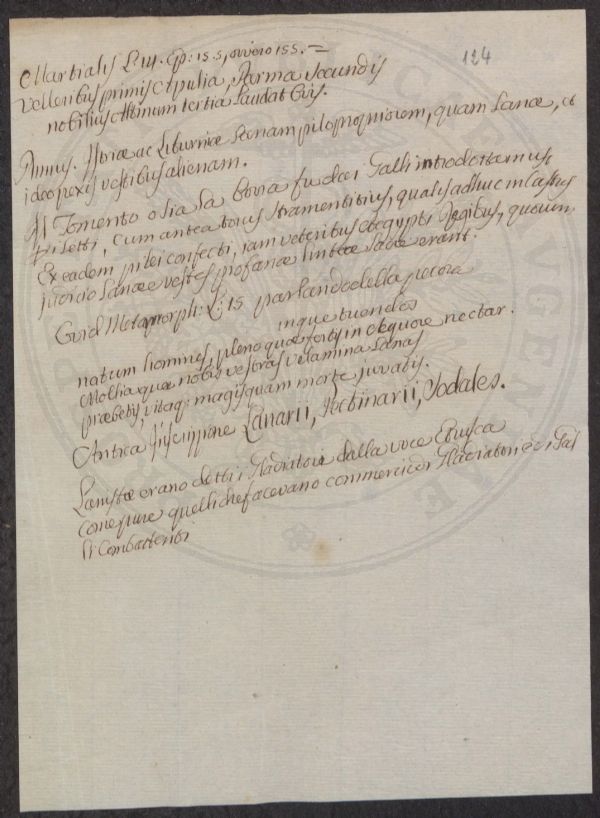 124
Martialis L. 14. Ep: 155, ovvero 155. =
Velleribus primis Apulia, Parma secundis
nobilis Altinum tertia laudat ovis.
Plinius. Istriae ac Liburniae pilo propriorem, quam lanae, et
ideo pexis vestibus alienam.
Il Tomento o sia la borra fu dai Galli introdotta
cum antea torus stramentitius, qualis adhuc in castris
Ex eadem pilei confecti, iam veteribus Aegypti Regibus, quorum
judicio lanae vestes profanae linteae sacrae erant.
Ovid Metamorph: L: 15 parlando della pecora
inque tuendos
natum homines, pleno quae fertis in ubere nectar.
Mollia quae nobis vestras velamina lanas
praebetis, vitaq: magis quam morte juvatis.
Antica Inscrizione Lanarii, Pectinarii, Sodales.
Lanistae erano detti i Gladiatori dalla voce Etrusca
come pure quelli che facevano commercio di Gladiatori e i Gal
li combattenti